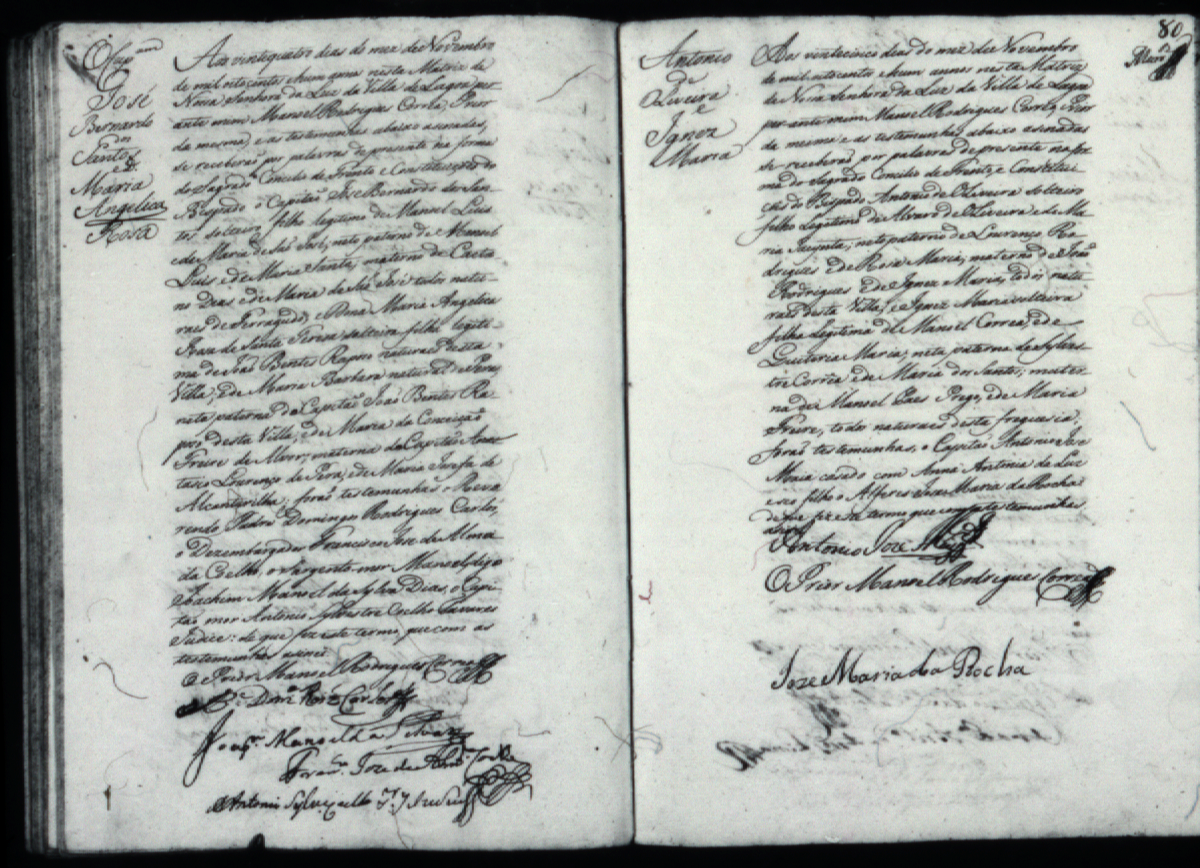 O Cap.am
José
Bernardo
dos
Santos e
Maria
Angelica
Rosa
Aos vintequatro dias do mez de Novembro
de mil oitocentos e hum annos nesta Matriz de
Nossa Senhora da Luz da Villa de Lagoa per
ante mim Manoel Rodrigues Corrêa, Prior
da mesma, e as testemunhas abaixo asinadas,
se receberaõ por palavras de presente na forma
do Sagrado Concilio de Trento e Constituiçoens do
Bispado o Capitaõ José Bernardo dos San-
tos solteiro, filho legitimo de Manoel Luis
e de Maria de Saõ José, neto paterno de Manoel
Luis e de Maria Santa, materno de Caeta-
no Dias e de Maria de Saõ José todos natu-
raes de Ferragudo, e Dona Maria Angelica
Roza de Santa Tereza solteira, filha legiti-
ma de Joaõ Bentes Rapozo natural desta
Villa, e de Maria Barbara natural de Pera,
neta paterna do Capitaõ Joaõ Bentes Ra-
pozo, desta Villa, e de Maria da Conceiçaõ
Freire de Alvor, materna do Capitaõ Anas-
tacio Lourenço de Pera, e de Maria Josefa de
Alcantarilha; foraõ testemunhas o Reve-
rendo Padre Domingos Rodrigues Carlos,
o Dezembargador Francisco José de Almei-
da Coelho, o Sargento mor Manoel digo
Joachim Manoel da Sylva Dias, o Capi-
taõ mor Antonio Sylvestre Coelho Tavares
Judice: de que fiz este termo, que com as
testemunhas asinei
O Prior Manoel Rodrigues Correa
P.e Dom.os Roiz Carlos
Joaq.m Manoel da Silva
Fran.co Joze de Alm.da Coelho
Antonio Sylv.e Coelho
80
Antonio
de
Oliveira
e
Ignez
Maria
Aos vintecinco dias do mez de Novembro
de mil oitocentos e hum annos nesta Matriz
de Nossa Senhora da Luz da Villa de Lagoa
per ante mim Manoel Rodrigues Corrêa, Prior
da mesma e as testemunhas abaixo asinadas
se receberaõ por palavras de presente na for-
ma do Sagrado Concilio de Trento, e Constitui-
çoẽs do Bispado Antonio de Oliveira solteiro
filho Legitimo de Alvaro de Oliveira e de Ma-
ria Augusta; neto paterno de Lourenço Ro-
drigues e de Roza Maria, materno de Joaõ
Rodrigues e de Ignez Maria, todos natu-
raes desta Villa, e Ignez Maria solteira
filha Legitima de Manoel Correa, e de
Quiteria Maria; neta paterna de Sylves-
tre Corrêa e de Maria dos Santos; mater-
na de Manoel Paes Prego, e de Maria
Freire, todos naturaes desta freguesia,
foraõ testemunhas, o Capitaõ Antonio Jose
Maia casado com Anna Antonia da Luz
e seo filho o Alferes Jose Maria da Rocha:
de que fiz este termo que com as testemunhas
asinei
Antonio Joze M
O Prior Manoel Rodrigues Correa
Joze Maria da Rocha